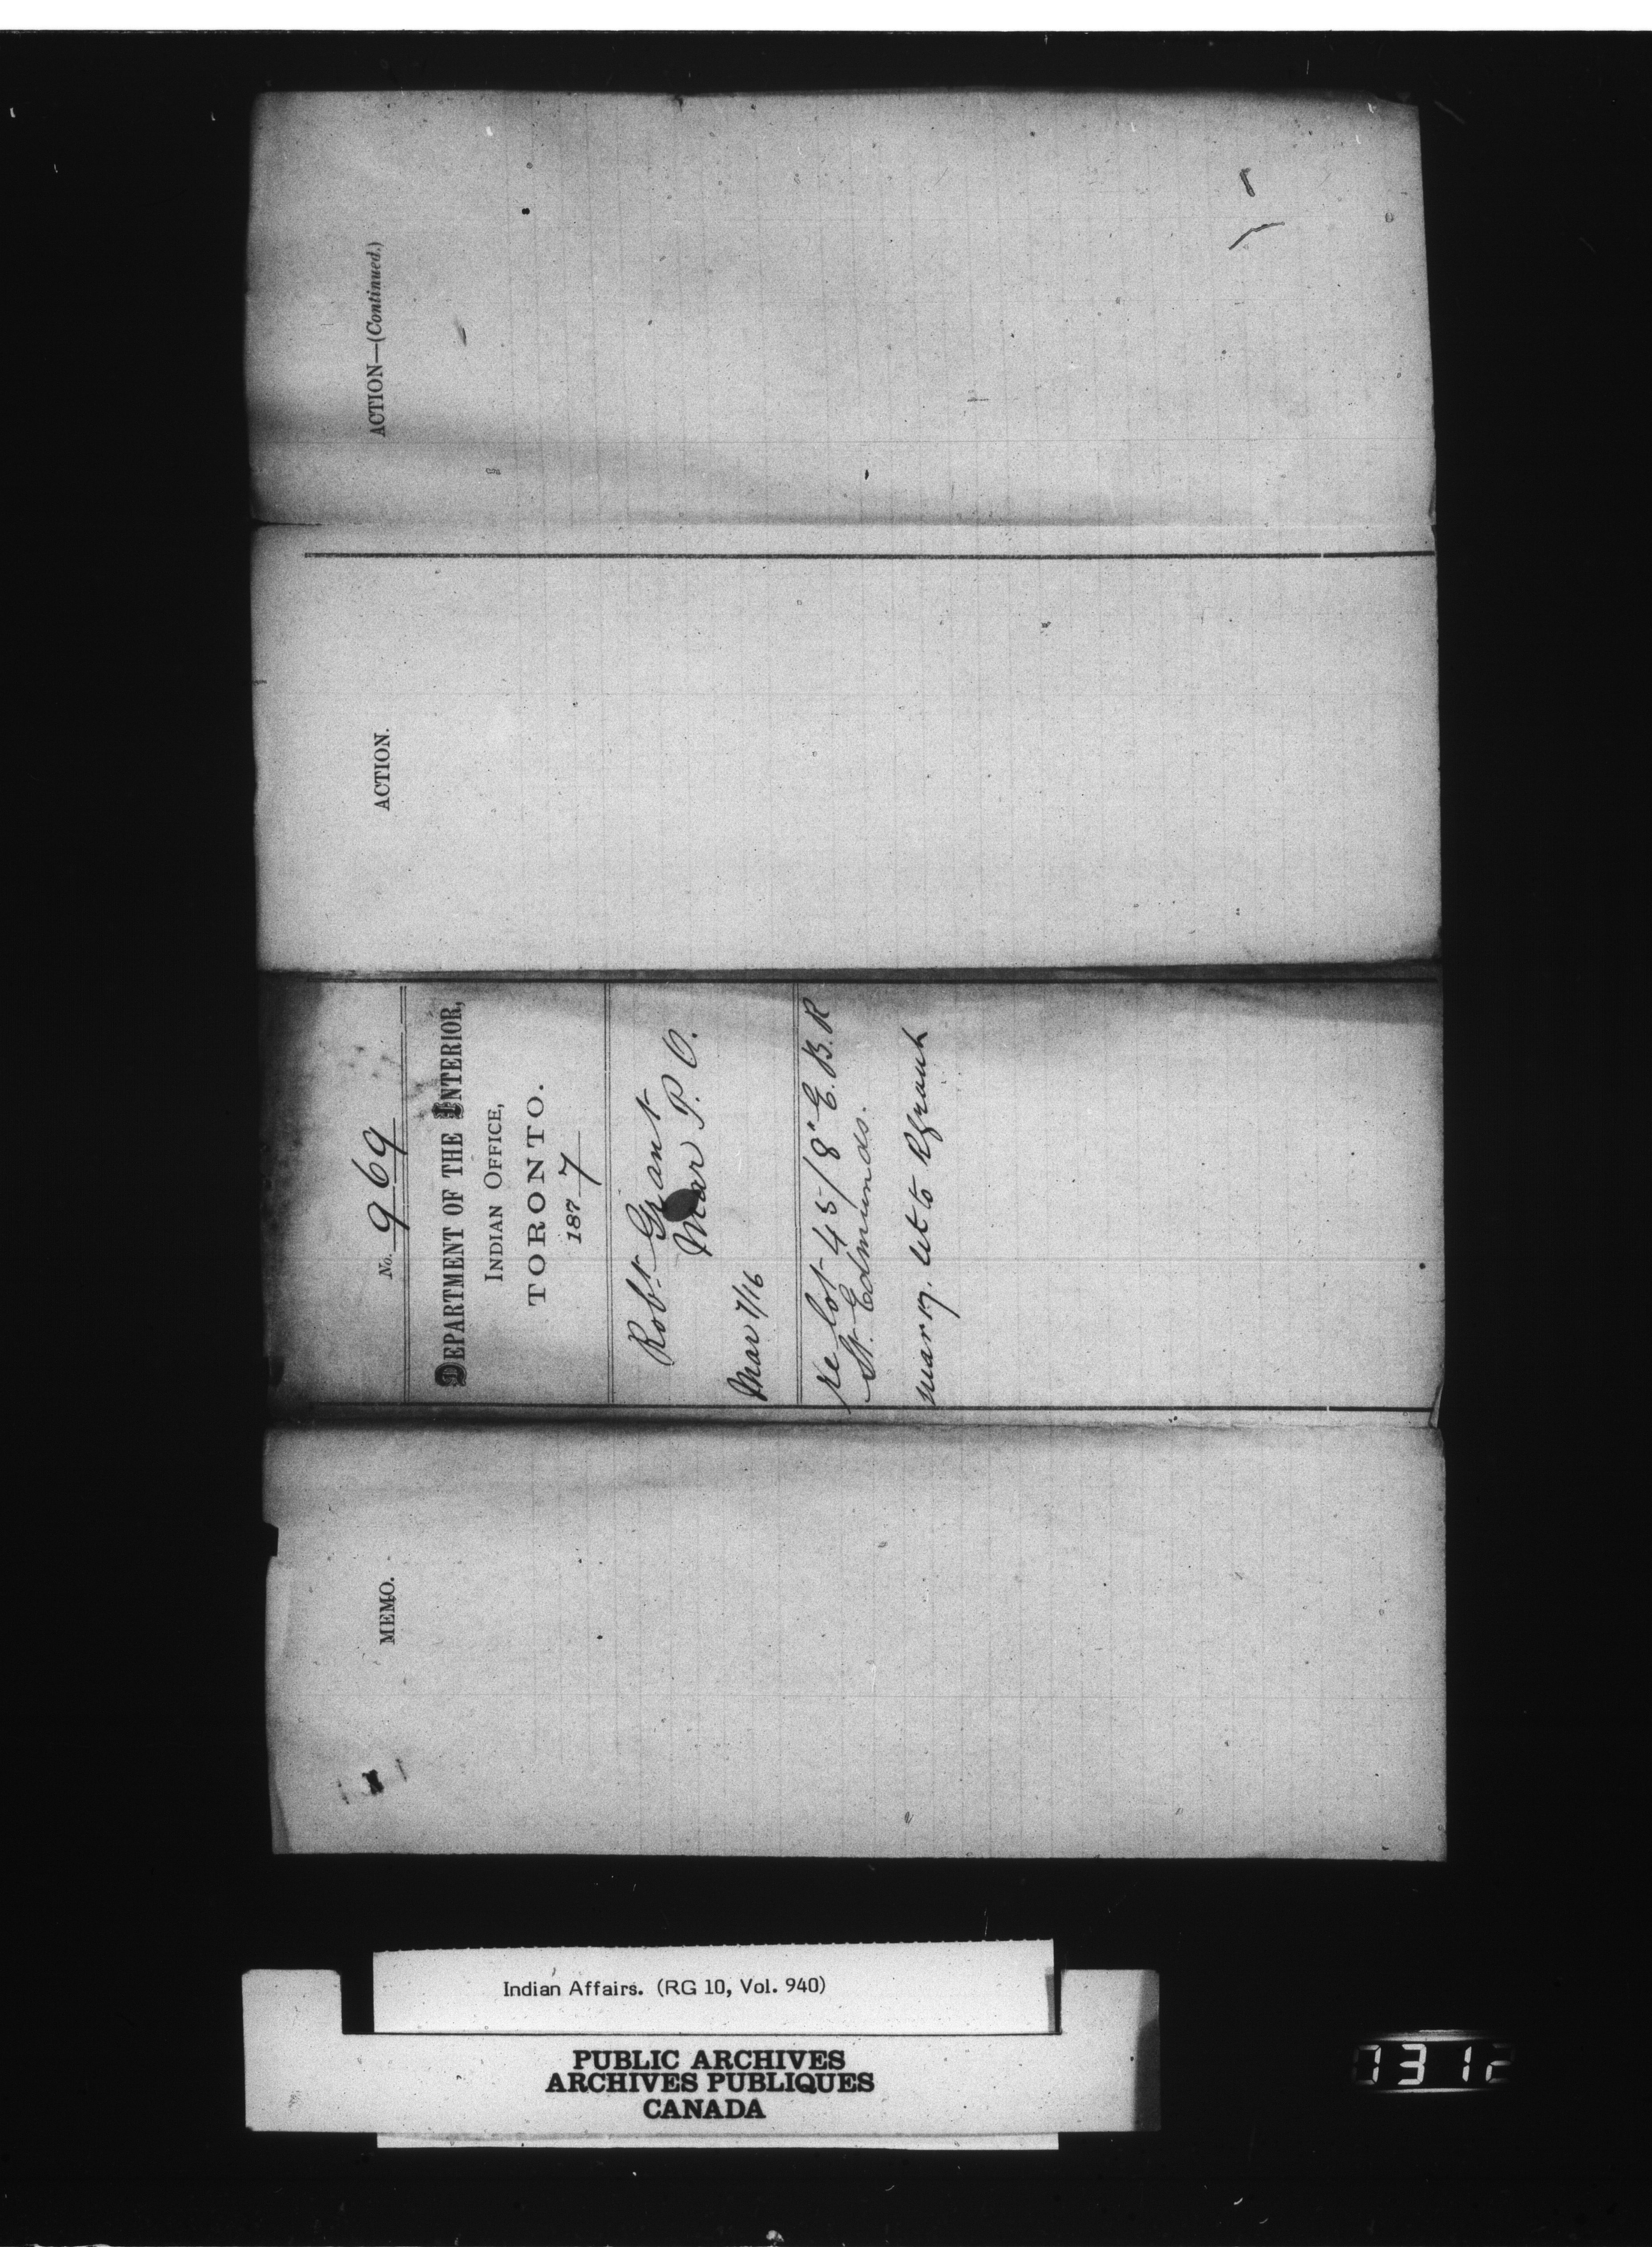 ACTION—(Continued.)
ACTION.
No. 969
DEPARTMENT OF THE INTERIOR,
INDIAN OFFICE,
TORONTO.
1877
Robt Grant
Mar P. O.
Mar 7/16
re lot 45/8" E. B. R
St. Edmunds.
mar 17. let to R Grant
MEMO.
Indian Affairs. (RG 10, Vol. 940)
PUBLIC ARCHIVES
ARCHIVES PUBLIQUES
CANADA
1312